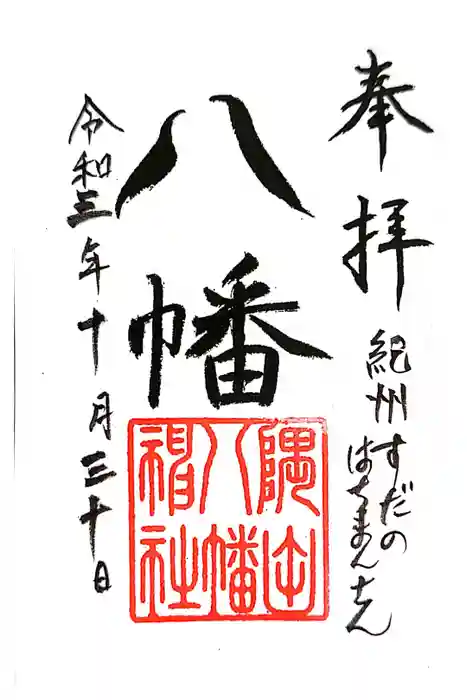 奉拝
紀州すだの
はちまんさん
八幡
隅田八幡神社
令和三年十月三十日